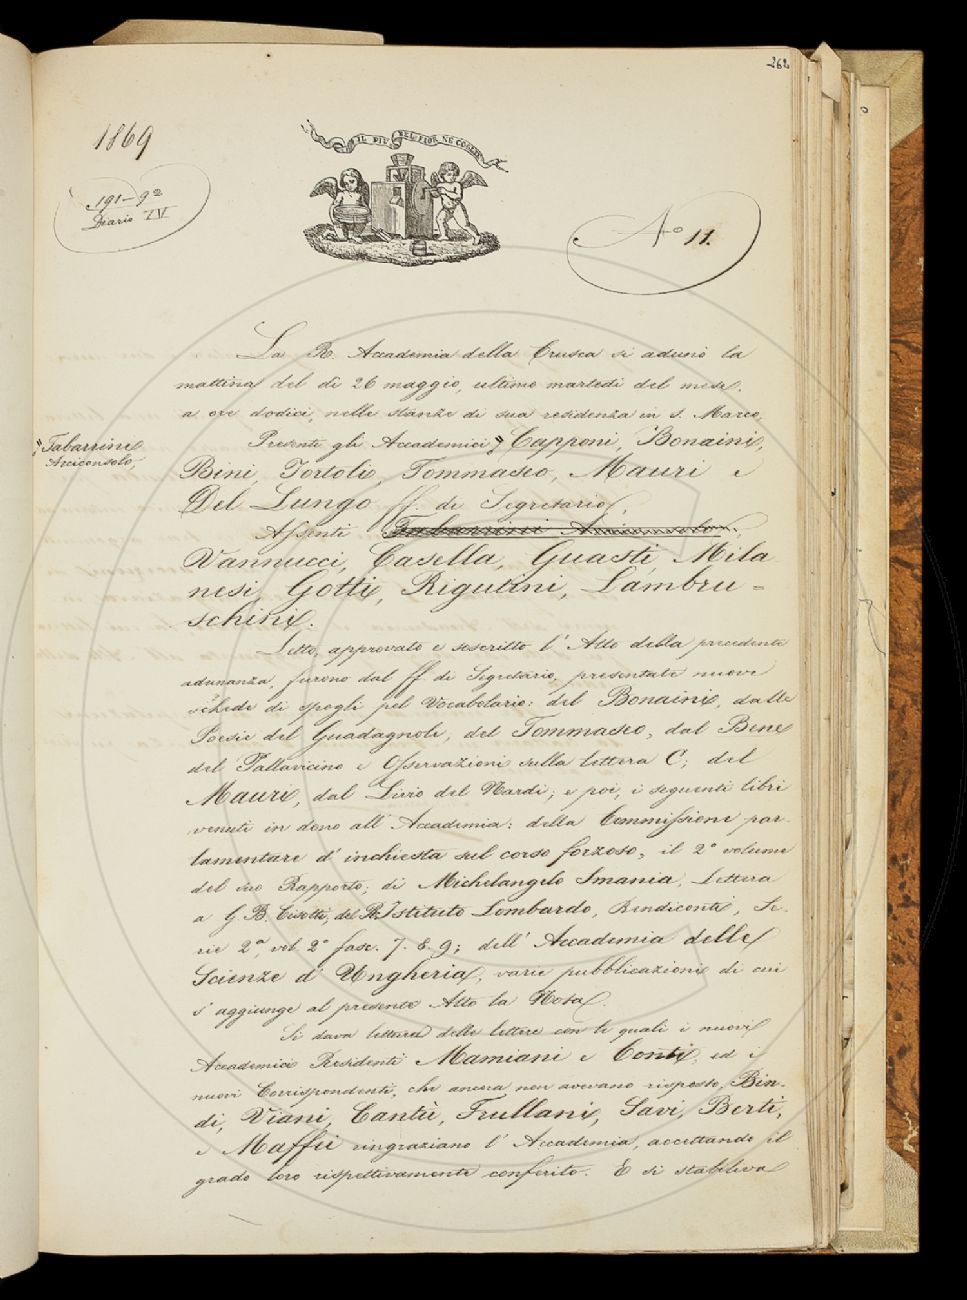 262
1869
191-9ª
Diario IV
IL PIÙ BEL FIOR NE COGLIE
Nº 11.
La R. Accademia della Crusca si adunò la
mattina del dì 26 maggio, ultimo martedì del mese,
a ore dodici, nelle stanze di sua residenza in S. Marco,
Presenti gli Accademici Capponi, Bonaini,
"Tabarrini
Arciconsolo,
Bini, Tortoli, Tommaseo, Mauri e
Del Lungo ff. di Segretario.
Assenti Tabarrini Arciconsolo,
Vannucci, Casella, Guasti, Mila
nesi, Gotti, Rigutini, Lambru=
schini.
Letto, approvato e soscritto l'Atto della precedente
adunanza, furono dal ff. di Segretario, presentate nuove
schede di spogli pel Vocabolario: del Bonaini, dalle
Poesie del Guadagnoli, del Tommaseo, dal Bene
del Pallavicino e Osservazioni sulla lettera C; del
Mauri, dal Livio del Nardi; e poi, i seguenti libri
venuti in dono all'Accademia: della Commissione par-
lamentare d'inchiesta sul corso forzoso, il 2º volume
del suo Rapporto; di Michelangelo Smania, Lettera
a G. B. Cisotti, del R. Istituto Lombardo, Rendiconti, Se-
rie 2ª, vol. 2º fasc. 7. 8. 9; dell'Accademia delle
Scienze d'Ungheria, varie pubblicazioni di cui
s'aggiunge al presente Atto la Nota.
Si dava lettura delle lettere con le quali i nuovi
Accademici Residenti Mamiani e Conti, ed i
nuovi Corrispondenti, che ancora non avevano risposto, Bin-
di, Viani, Cantù, Frullani, Savi, Berti,
e Maffei ringraziano l'Accademia, accettando il
grado loro rispettivamente conferito. E si stabiliva